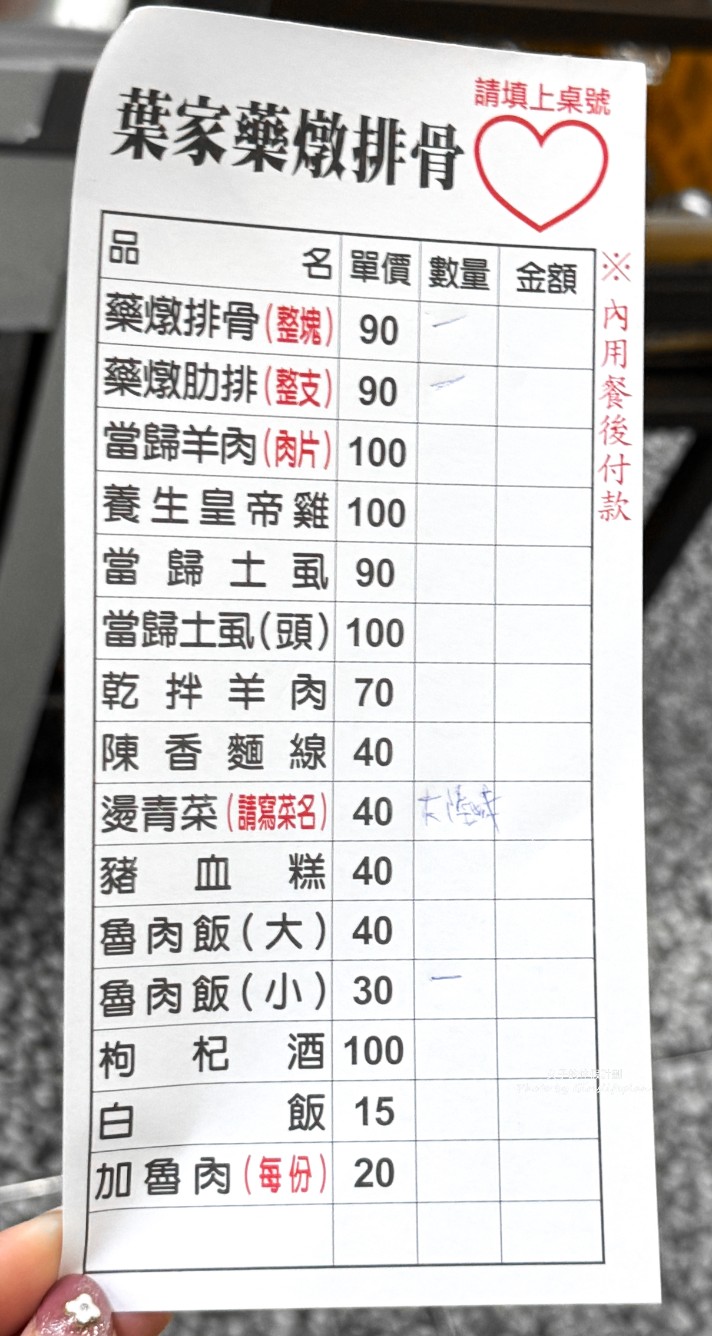 請填上桌號
葉家藥燉排骨
品名 單價 數量 金額
藥燉排骨(整塊) 90 一
藥燉肋排(整支) 90 一
當歸羊肉(肉片) 100
養生皇帝雞 100
當歸土虱 90
當歸土虱(頭) 100
乾拌羊肉 70
陳香麵線 40
燙青菜(請寫菜名) 40 大陸
豬血糕 40
魯肉飯(大) 40
魯肉飯(小) 30 一
枸杞酒 100
白飯 15
加魯肉(每份) 20
※內用餐後付款